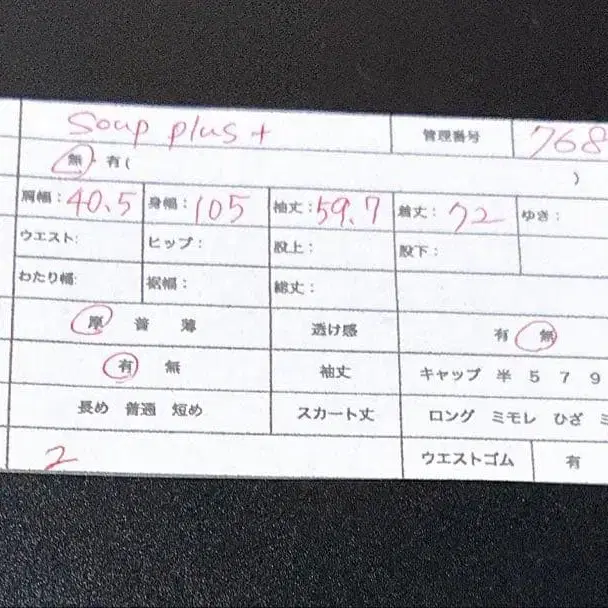 Soup plus+ 管理番号 768
無・有( )
肩幅: 40.5 身幅: 105 袖丈: 59.7 着丈: 72 ゆき:
ウエスト: ヒップ: 股上: 股下:
わたり幅: 裾幅: 総丈:
厚 普 薄 透け感 有 無
有 無 袖丈 キャップ 半 5 7 9
長め 普通 短め スカート丈 ロング ミモレ ひざ ミ
2 ウエストゴム 有